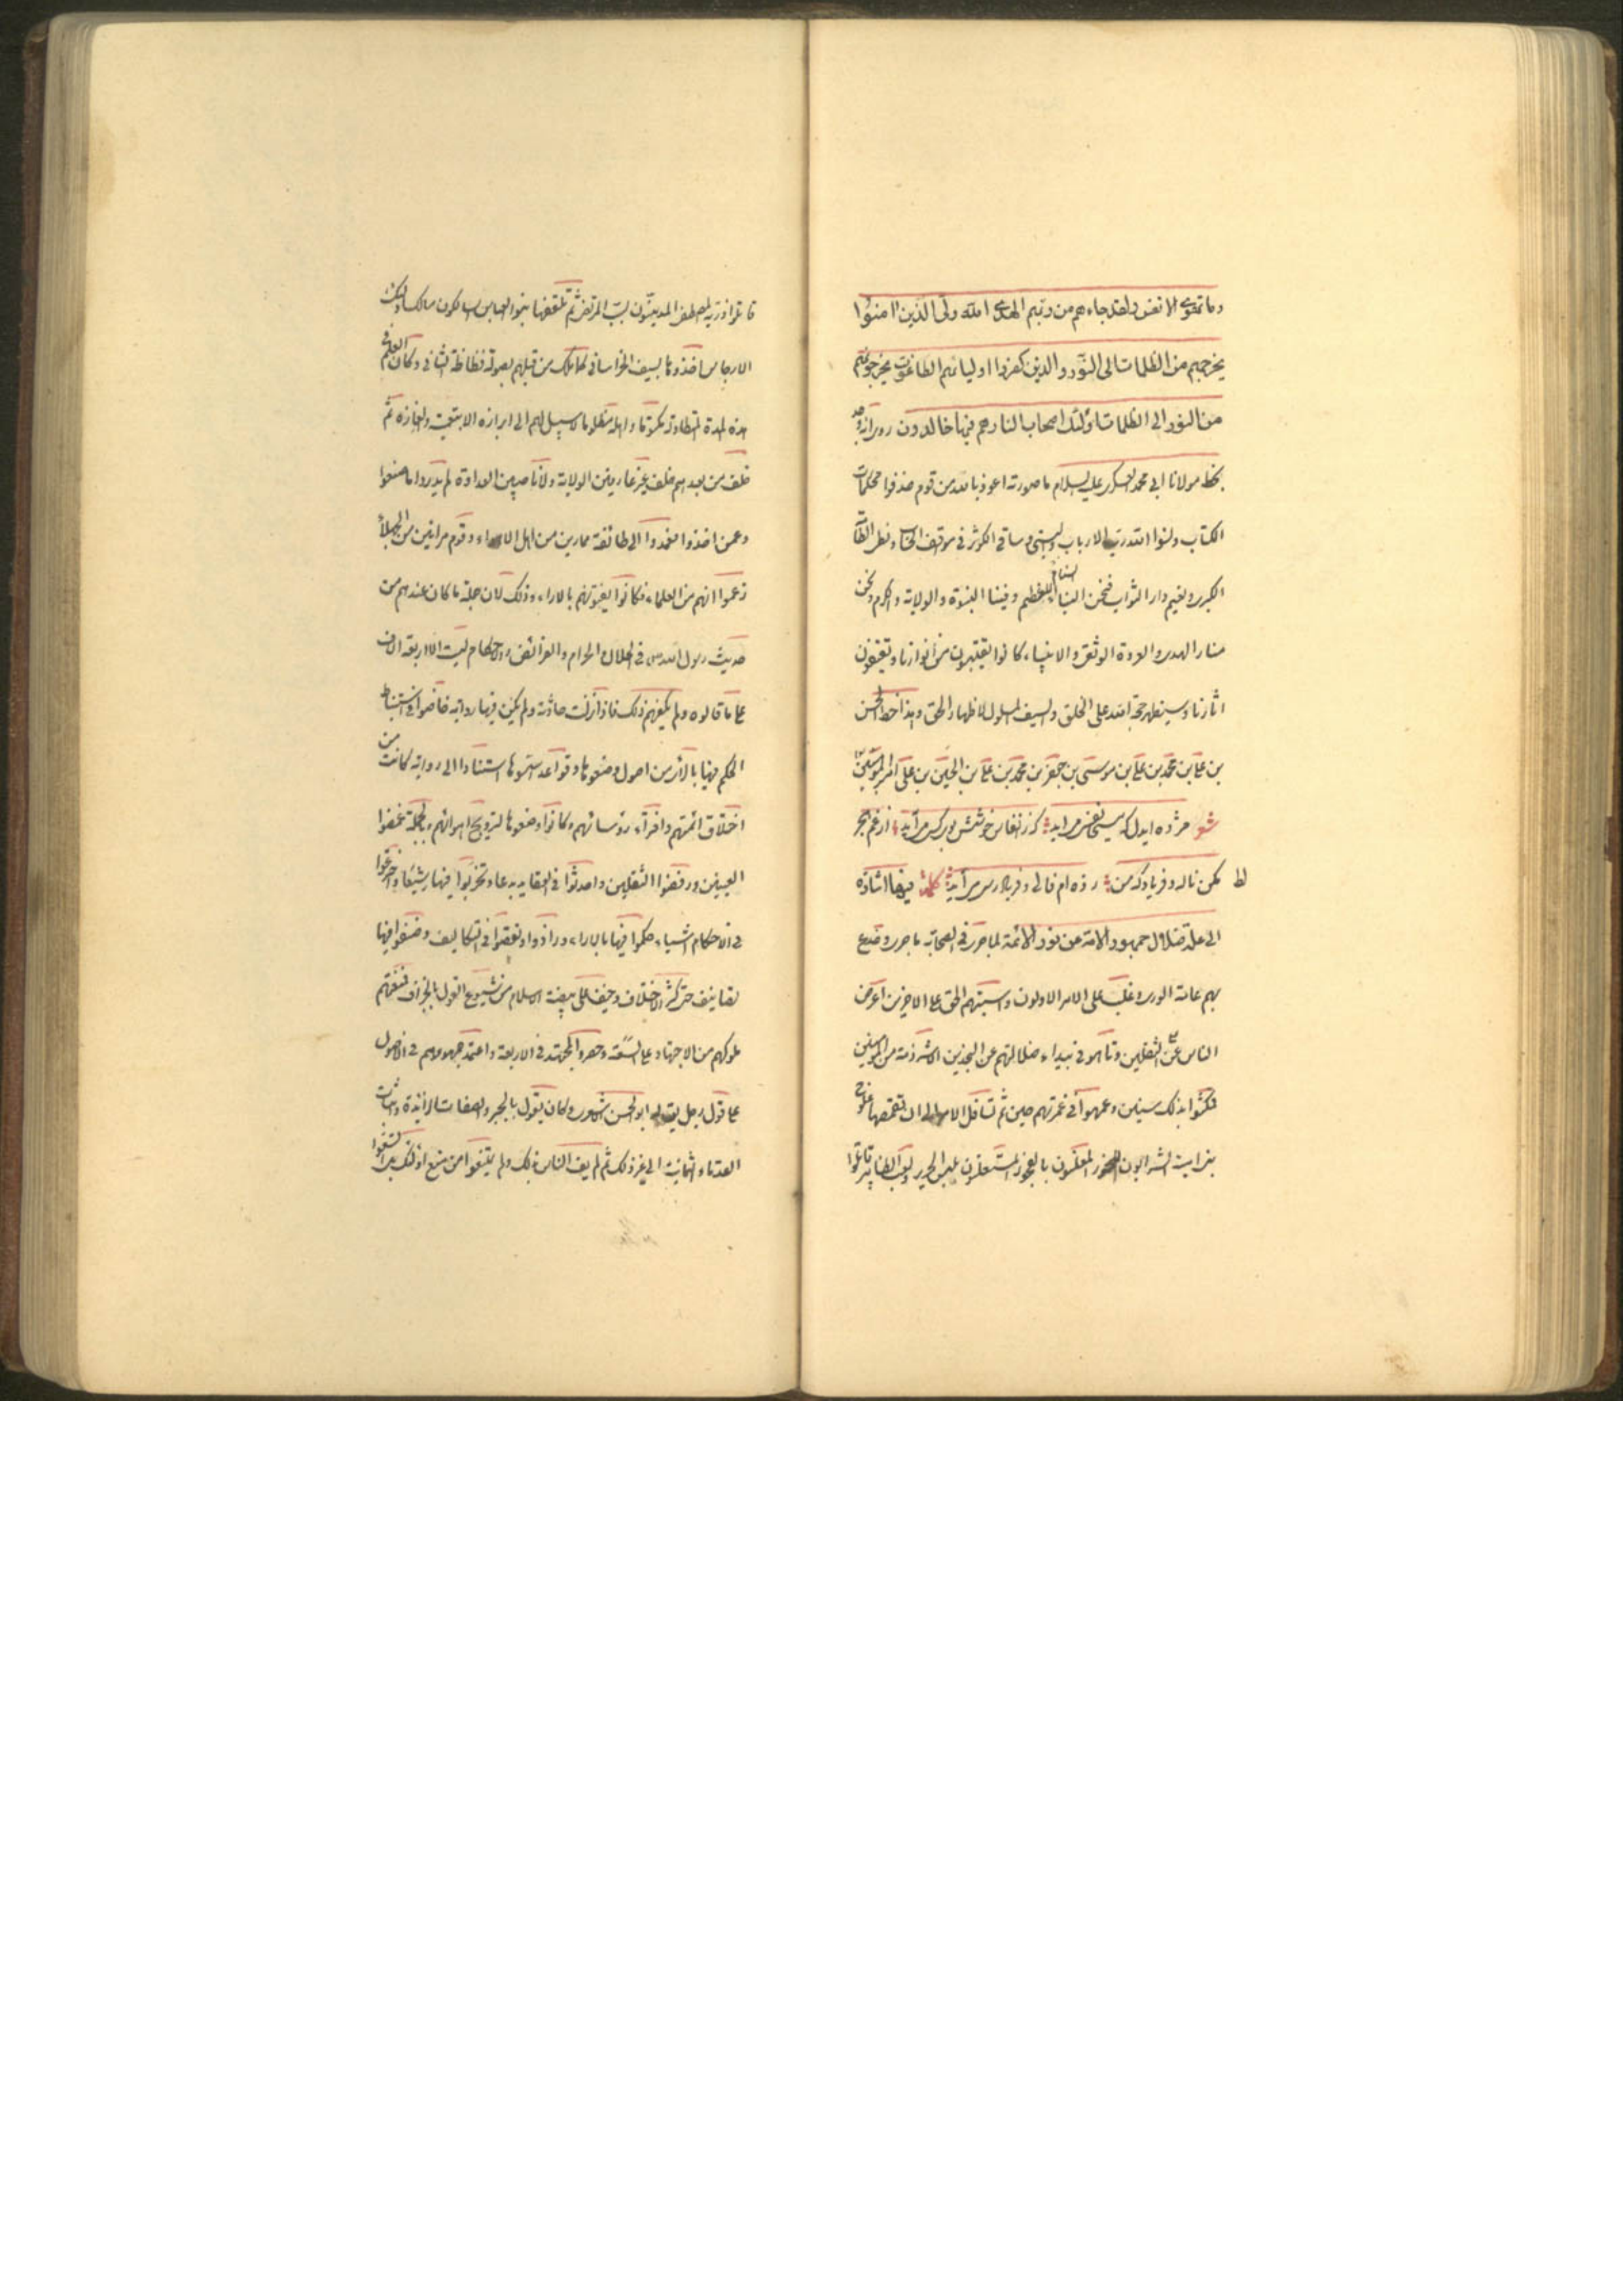 وما تهوى الانفس ولقد جاءهم من ربهم الهدى الله ولى الذين امنوا
يخرجهم من الظلمات الى النور والذين كفروا اولياؤهم الطاغوت يخرجونهم
من النور الى الظلمات اولئك اصحاب النار هم فيها خالدون روى انه وجد
بخط مولانا ابى محمد العسكرى عليه السلام ما صورته اعوذ بالله من قوم حذفوا محكمات
الكتاب ونسوا الله رب الارباب والنبى وساقى الكوثر فى موقف الحساب ولظى الطامة
الكبرى ونعيم دار الثواب فنحن السنام الاعظم وفينا النبوة والولاية والكرم ونحن
منار الهدى والعروة الوثقى والانبياء كانوا يقتبسون من أنوارنا ويقتفون
اثارنا وسيظهر حجة الله على الخلق والسيف المسلول لاظهار الحق وهذا خط الحسن
بن على بن محمد بن على بن موسى بن جعفر بن محمد بن على بن الحسين بن على امير المؤمنين
شعر مژده ايدل كه مسيحا نفسى مى ايد كه ز انفاس خوشش بوى كسى مى آيد از غم هجر
لط مكن ناله وفرياد كه من زده ام فالى وفريادرسى مى آيد كلمة فيها اشارة
الى علة ضلال جمهور الامة عن نور الائمة لما جرى فى الصحابة ما جرى وخدع
بهم عامة الورى وغلب على الامر الاولون وسبيتهم الحق على الاخرين اعرض
الناس عن الثقلين وتاهوا فى بيداء ضلالتهم عن النجدين الا شرذمة من المؤمنين
فمكثوا بذلك سنين وعمهوا فى غمرتهم حتى حين ثم تناقل الامر الى ان تقمصها علوج
بنى امية الشرابون للخمور المعلنون بالفجور المستعلنون بلبس الحرير ولعب الطنابير قاتلوا
قاتلوا ذرية المصطفى المدينون بسب المرتضى ثم تقمصها بنو العباس السالكون مسالك اولئك
الارجاس اخذوها بسيف الخراسانى كما تملك من قبلهم بصولة فظاظة الثانى وكان العلم فى
هذه المدة المتطاولة مكتوما واهله مظلوما لا سبيل لهم الى ابرازه الا بتعمية والغازه ثم
خلف من بعدهم خلف غير عارفين الولاية ولا ناصبين العداوة لم يدروا ما صنعوا
وعمن اخذوا فعمدوا الى طائفة ممارين من اهل الاهواء وقوم مرائين من الجهلاء
زعموا انهم من العلماء فكانوا يفتونهم بالاراء وذلك لان جلة ما كان عندهم من
حديث رسول الله ص فى الحلال والحرام والفرائض والاحكام ليست الا اربعة الاف
على ما قالوه ولم يكفهم ذلك فاذا نزلت حادثة ولم يكن فيها رواية خاضوا فى استنباط
الحكم فيها بالرأى من اصول وضعوها وقواعد اسسوها استنادا الى رواية كانت من
اختلاق ائمتهم وافتراء رؤسائهم وكانوا وضعوها لترويج اهوائهم وبالجملة غمضوا
العينين ورفضوا الثقلين واحدثوا فى العقايد بدعا وتحزبوا فيها شيعا واخترعوا
فى الاحكام اشياء حكموا فيها بالاراء وزادوا ونقصوا فى التكاليف وصنفوا فيها
تصانيف حتى كثر الاختلاف وخيف على بيضة الاسلام من شيوع القول الجزاف فمنعهم
ملوكهم من الاجتهاد على السعة وحصروا المجتهد فى الاربعة واعتمد جمهورهم فى الاصول
على قول رجل يقال له ابو الحسن الاشعرى وكان يقول بالجبر والصفات الزائدة واثبات
القدماء الثمانية الى غير ذلك ثم لم يقف الناس بذلك ولم يقنعوا من منع اولئك بل اتسعوا